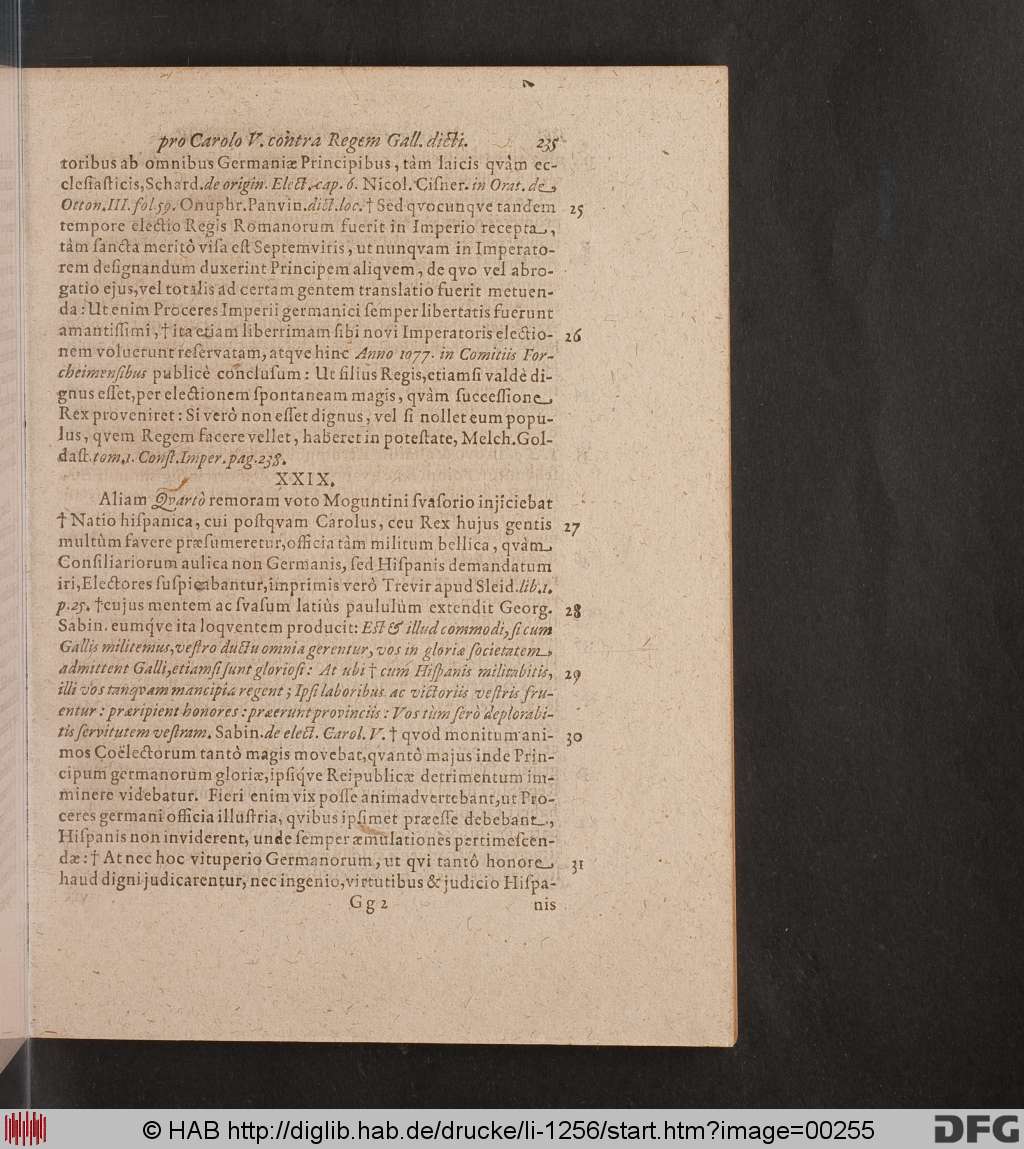 pro Carolo V. contra Regem Gall. dicti. 235
toribus ab omnibus Germaniæ Principibus, tàm laicis qvàm ec-
clesiasticis, Schard. de origin. Elect. cap. 6. Nicol. Cisner. in Orat. de
Otton. III. fol 59. Onuphr. Panvin. dict. loc. † Sed qvocunqve tandem 25
tempore electio Regis Romanorum fuerit in Imperio recepta,
tàm sancta meritò visa est Septemviris, ut nunqvam in Imperato-
rem designandum duxerint Principem aliqvem, de qvo vel abro-
gatio ejus, vel totalis ad certam gentem translatio fuerit metuen-
da: Ut enim Proceres Imperii germanici semper libertatis fuerunt
amantissimi, † ita etiam liberrimam sibi novi Imperatoris electio- 26
nem voluerunt reservatam, atqve hinc Anno 1077. in Comitiis For-
cheimensibus publicè conclusum: Ut filius Regis, etiamsi valdè di-
gnus esset, per electionem spontaneam magis, qvàm successione
Rex proveniret: Si verò non esset dignus, vel si nollet eum popu-
lus, qvem Regem facere vellet, haberet in potestate, Melch. Gol-
dast. tom. 1. Const. Imper. pag. 238.
XXIX.
Aliam Qvartò remoram voto Moguntini svasorio injiciebat
† Natio hispanica, cui postqvam Carolus, ceu Rex hujus gentis 27
multùm favere præsumeretur, officia tàm militum bellica, qvàm
Consiliariorum aulica non Germanis, sed Hispanis demandatum
iri, Electores suspicabantur, imprimis verò Trevir apud Sleid. lib. 1.
p. 25. † cujus mentem ac svasum latiùs paululùm extendit Georg. 28
Sabin. eumq́ve ita loqventem producit: Est & illud commodi, si cum
Gallis militemus, vestro ductu omnia gerentur, vos in gloriæ societatem
admittent Galli, etiamsi sunt gloriosi: At ubi † cum Hispanis militabitis, 29
illi vos tanqvam mancipia regent; Ipsi laboribus ac victoriis vestris fru-
entur: præripient honores: præerunt provinciis: Vos tum serò deplorabi-
tis servitutem vestram. Sabin. de elect. Carol. V. † qvod monitum ani- 30
mos Coëlectorum tantò magis movebat, qvantò majus inde Prin-
cipum germanorum gloriæ, ipsiq́ve Reipublicæ detrimentum im-
minere videbatur. Fieri enim vix posse animadvertebant, ut Pro-
ceres germani officia illustria, qvibus ipsimet præesse debebant,
Hispanis non inviderent, unde semper æmulationes pertimescen-
dæ: † At nec hoc vituperio Germanorum, ut qvi tantô honore 31
haud digni judicarentur, nec ingenio, virtutibus & judicio Hispa-
Gg 2 nis
© HAB http://diglib.hab.de/drucke/li-1256/start.htm?image=00255
DFG